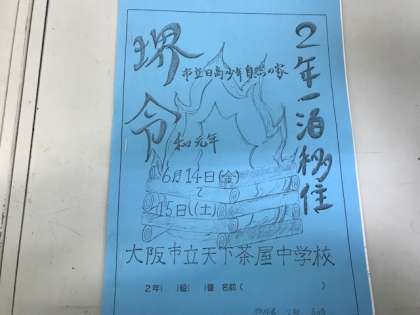 2年一泊移住
堺
市立日高少年自然の家
令
和元年
6月14日(金)
〜
15日(土)
大阪市立天下茶屋中学校
2年( )組( )番 名前( )